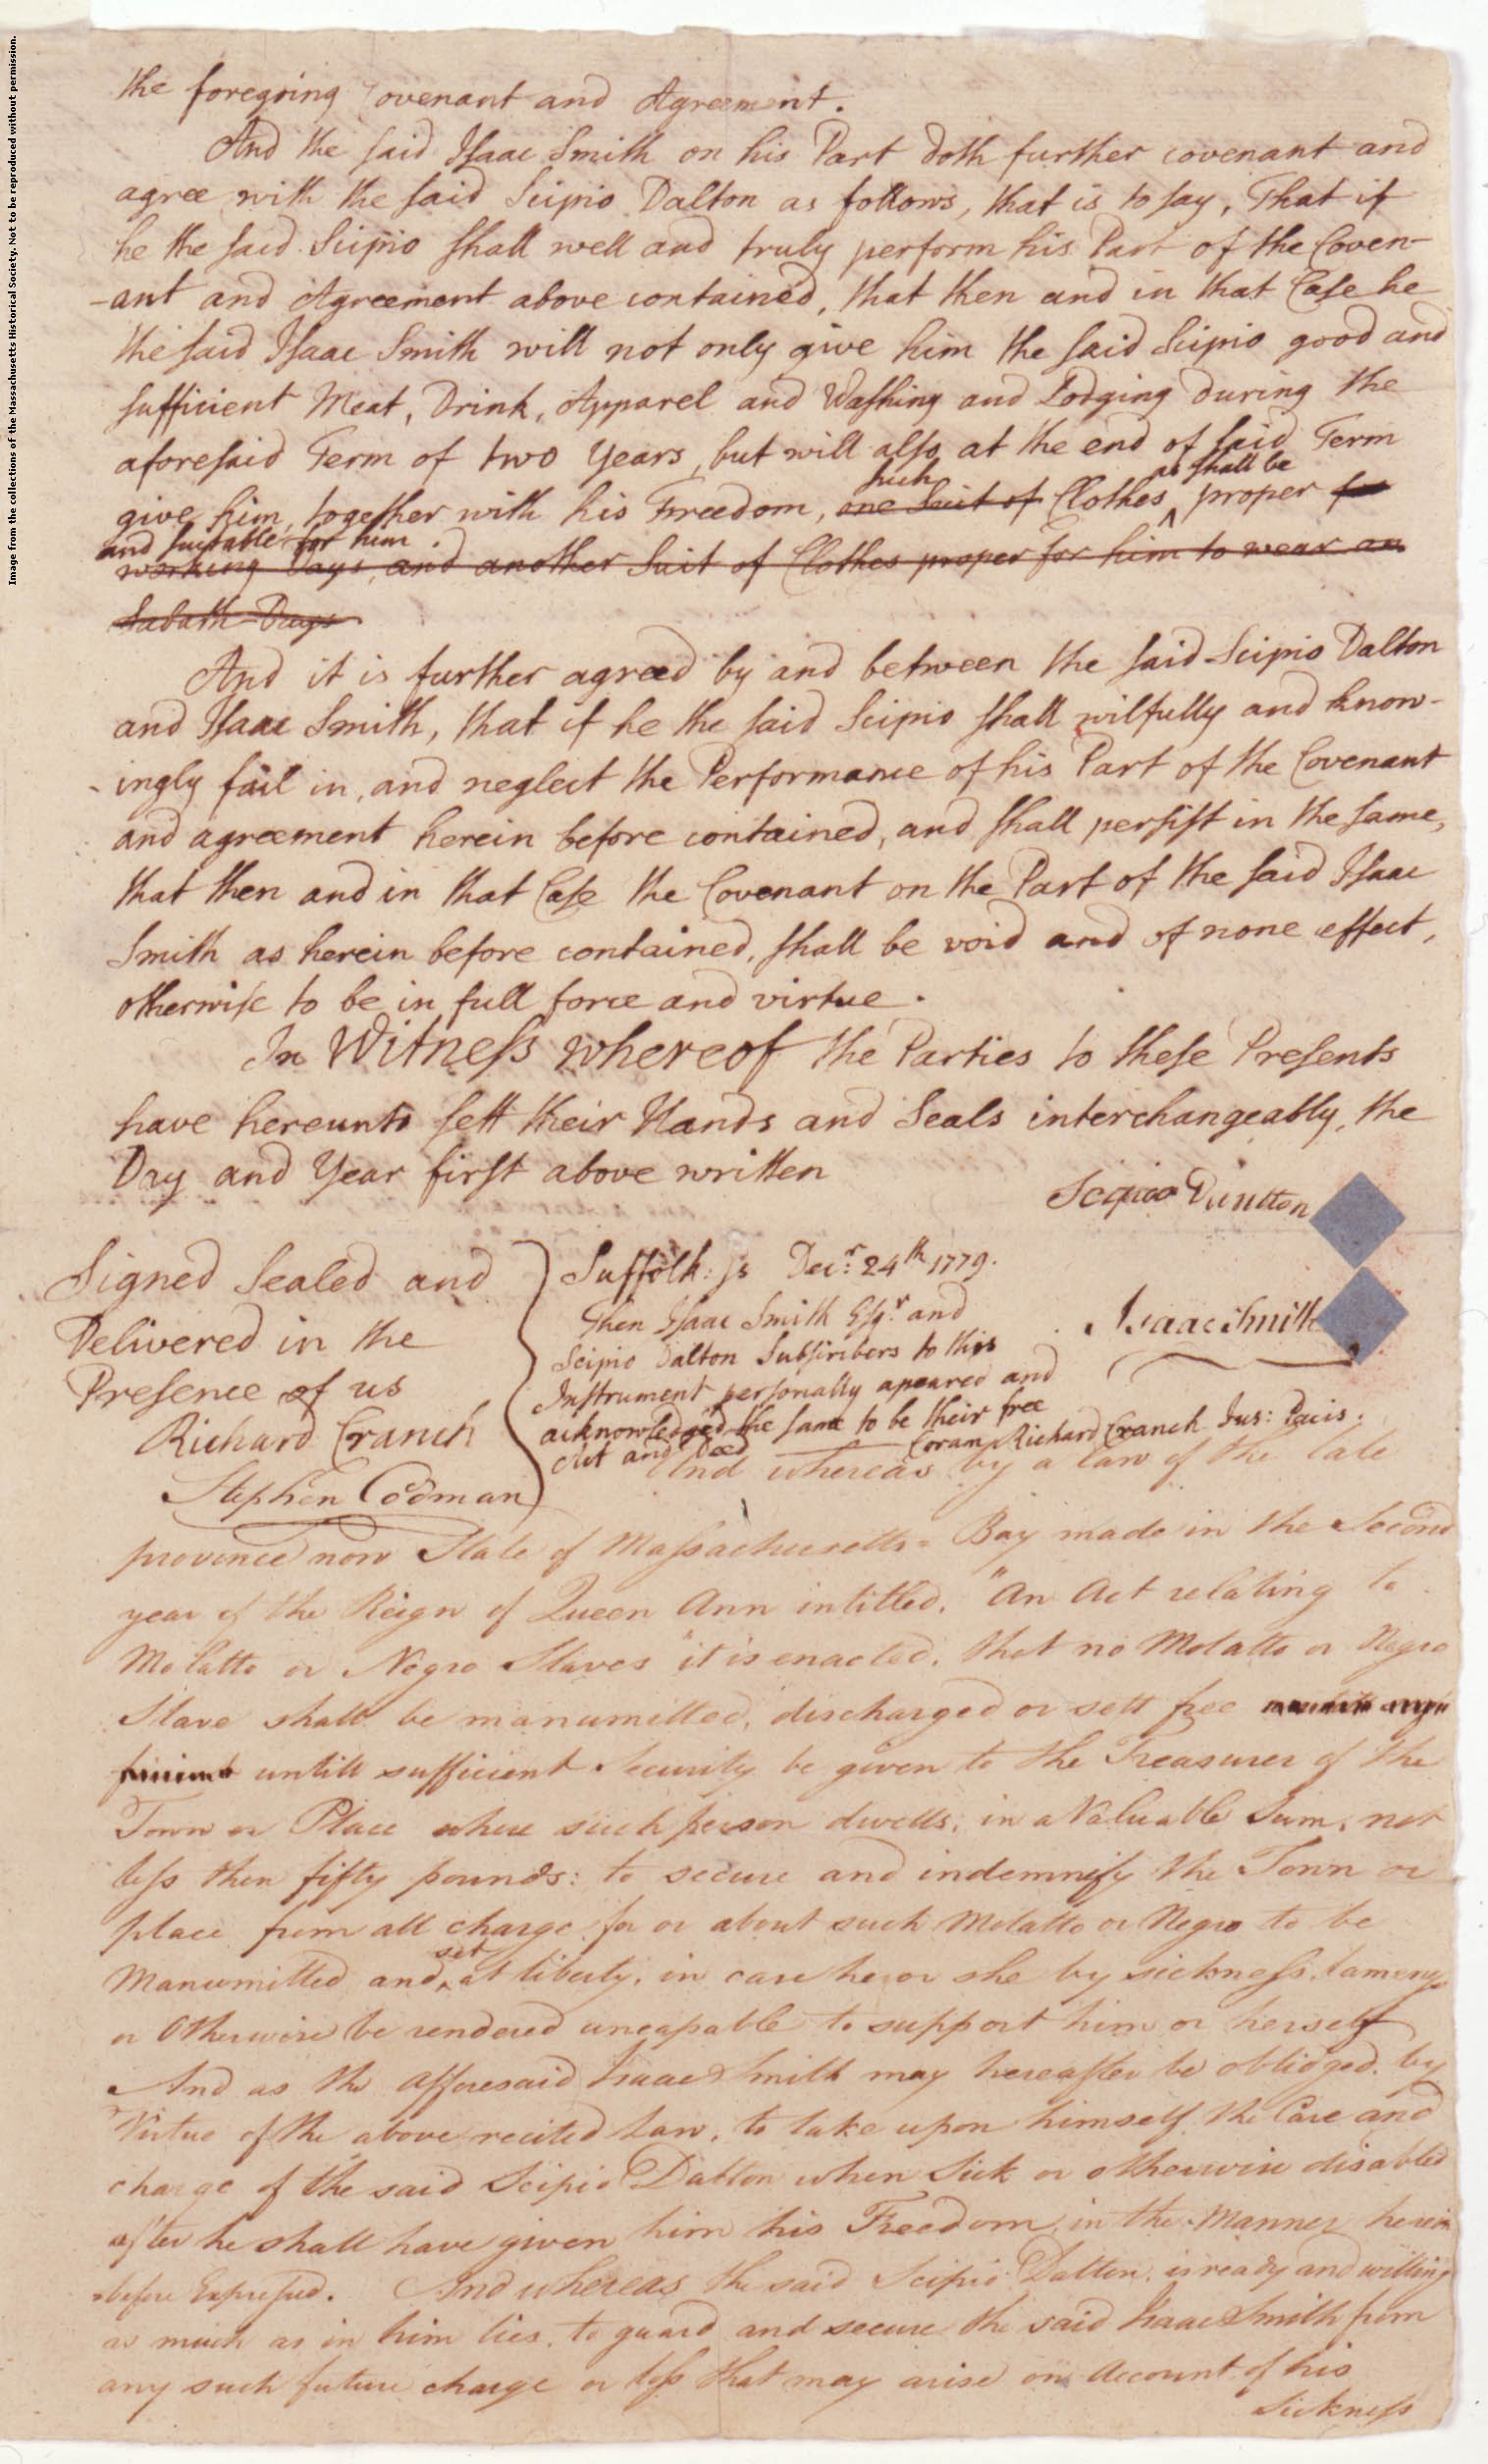 Image from the collections of the Massachusetts Historical Society. Not to be reproduced without permission.
the foregoing Covenant and Agreement.
And the said Isaac Smith on his Part doth further covenant and
agree with the said Scipio Dalton as follows, that is to say, That if
he the said Scipio shall well and truly perform his Part of the Coven-
-ant and Agreement above contained, that then and in that Case he
the said Isaac Smith will not only give him the said Scipio good and
sufficient Meat, Drink, Apparel and Washing and Lodging during the
aforesaid Term of two Years, but will also, at the end of said Term
such as shall be
give him, together with his Freedom, one Suit of Clothes ^ proper for
and suitable for him.
working Days, and another Suit of Clothes proper for him to wear on
Sabath-Days
And it is further agreed by and between the said Scipio Dalton
and Isaac Smith, that if he the said Scipio shall wilfully and know-
-ingly fail in, and neglect the Performance of his Part of the Covenant
and agreement herein before contained, and shall persist in the same,
that then and in that Case the Covenant on the Part of the said Isaac
Smith as herein before contained, shall be void and of none effect,
otherwise to be in full force and virtue.
In Witness whereof the Parties to these Presents
have hereunto sett their Hands and Seals interchangeably, the
Day and Year first above written
Scipio
Isaac Smith
Signed Sealed and
Delivered in the
Presence of us
Richard Cranch
Stephen Codman
Suffolk: ss Decr: 24th 1779.
Then Isaac Smith Esqr. and
Scipio Dalton Subscribers to this
Instrument personally apeared and
acknowledged the same to be their free
Act and Deed
Coram Richard Cranch Jus: Pacis.
And whereas by a law of the late
province now State of Massachusetts-Bay made in the Second
year of the Reign of Queen Ann intitled, "An Act relating to
Molatto or Negro Slaves" it is enacted, that no Molatto or Negro
Slave shall be manumitted, discharged or sett free
untill sufficient Security be given to the Treasurer of the
Town or Place where such person dwells, in a Valuable Sum, not
less then fifty pounds: to secure and indemnify the Town or
place from all charge for or about such Molatto or Negro to be
set
Manumitted and ^ at liberty, in case he or she by sickness, lameness
or Otherwise be rendered uncapable to support him or herself
And as the afforesaid Isaac Smith may hereafter be oblidged, by
Virtue of the above recited Law, to take upon himself the Care and
charge of the said Scipio Dalton when Sick or otherwise disabled
after he shall have given him his Freedom, in the Manner herein
-before Expressed. And whereas the said Scipio Dalton, is ready and willing
as much as in him lies, to guard and secure the said Isaac Smith from
any such future charge or loss that may arise on Account of his
Sickness